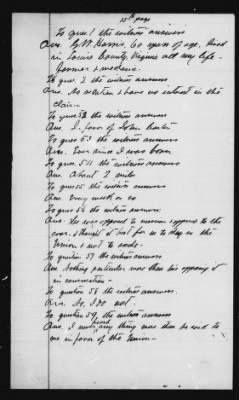 15th page
To ques 1 the witness answers
Ans. G. W. Harris, 60 years of age, lived
in Louisa County Virginia all my life.
Farmer & mechanic
To ques. 2 the witness answers
Ans. No relation & have no interest in the
claim.
To ques 52 the witness answers
Ans. I favor of John Hunter
To ques 53 the witness answers
Ans. Ever since I was born.
To ques 54 the witness answers
Ans. About 2 miles
To ques 55 the witness answers
Ans. Very much so
To ques 56 the witness answers
Ans. He was opposed to secession & opposed to the
war. & thought it best for us to stay in the
Union & not to secede.
To question 57 the witness answers
Ans. Nothing particular more than his opposing it
in conversation -
To question 58 the witness answers.
Ans. No, I do not.
To question 59, the witness answers
Ans. I never heard any thing more than he said to
me in favor of the Union -